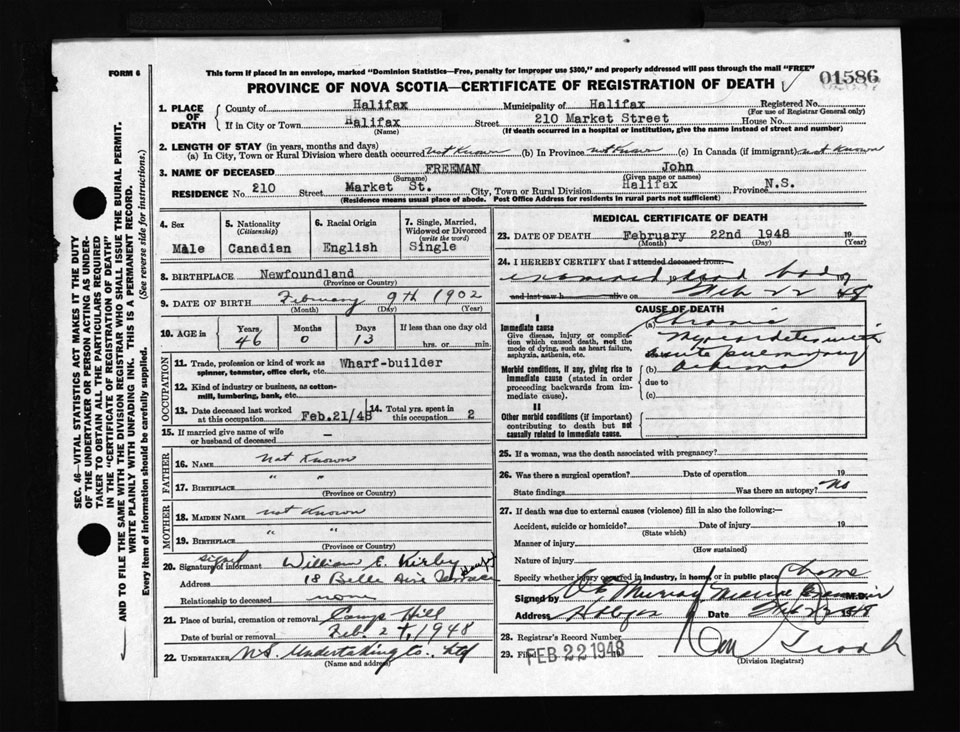 FORM 6
This form if placed in an envelope, marked "Dominion Statistics—Free, penalty for improper use $300," and properly addressed will pass through the mail "FREE"
PROVINCE OF NOVA SCOTIA—CERTIFICATE OF REGISTRATION OF DEATH
01586
1. PLACE OF DEATH
County of Halifax Municipality of Halifax Registered No.
(For use of Registrar General only)
If in City or Town Halifax Street 210 Market Street House No.
(Name) (If death occurred in a hospital or institution, give the name instead of street and number)
2. LENGTH OF STAY (in years, months and days)
(a) In City, Town or Rural Division where death occurred not known (b) In Province not known (c) In Canada (if immigrant) not known
3. NAME OF DECEASED FREEMAN John
(Surname) (Given name or names)
RESIDENCE No. 210 Street Market St. City, Town or Rural Division Halifax Province N.S.
(Residence means usual place of abode. Post Office Address for residents in rural parts not sufficient)
4. Sex
Male
5. Nationality
(Citizenship)
Canadian
6. Racial Origin
English
7. Single, Married, Widowed or Divorced
(write the word)
Single
8. BIRTHPLACE Newfoundland
(Province or Country)
9. DATE OF BIRTH February 9th 1902
(Month) (Day) (Year)
10. AGE in Years Months Days If less than one day old
46 0 13 hrs. or min.
OCCUPATION
11. Trade, profession or kind of work as spinner, teamster, office clerk, etc. Wharf-builder
12. Kind of industry or business, as cotton-mill, lumbering, bank, etc.
13. Date deceased last worked at this occupation Feb.21/48
14. Total yrs. spent in this occupation 2
15. If married give name of wife or husband of deceased –
FATHER
16. NAME not known
17. BIRTHPLACE " "
(Province or Country)
MOTHER
18. MAIDEN NAME not known
19. BIRTHPLACE " "
(Province or Country)
20. Signature of informant William E. Kirby
sigd
Address 18 Belle Aire Terrace
Relationship to deceased none
21. Place of burial, cremation or removal Camp Hill
Date of burial or removal Feb. 24, 1948
22. UNDERTAKER N.S. Undertaking Co. Ltd
(Name and address)
MEDICAL CERTIFICATE OF DEATH
23. DATE OF DEATH February 22nd 1948 19
(Month) (Day) (Year)
24. I HEREBY CERTIFY that I attended deceased from
examined dead body
and last saw h alive on Feb 22 48
CAUSE OF DEATH
I
Immediate cause
Give disease, injury or complication which caused death, not the mode of dying, such as heart failure, asphyxia, asthenia, etc.
(a) Chronic
Myocarditis with
acute pulmonary
oedema
Morbid conditions, if any, giving rise to immediate cause (stated in order proceeding backwards from immediate cause).
(b)
due to
(c)
II
Other morbid conditions (if important) contributing to death but not causally related to immediate cause.
25. If a woman, was the death associated with pregnancy?
26. Was there a surgical operation? Date of operation 19
State findings Was there an autopsy? No
27. If death was due to external causes (violence) fill in also the following:—
Accident, suicide or homicide? Date of injury 19
(State which)
Manner of injury
(How sustained)
Nature of injury
Specify whether injury occurred in industry, in home, or in public place home
Signed by Murray Medical Examiner M.D.
Address Halifax Date Feb 22 1948
28. Registrar's Record Number
29. Filed FEB 22 1948
(Division Registrar)
SEC. 46—VITAL STATISTICS ACT MAKES IT THE DUTY
OF THE UNDERTAKER OR PERSON ACTING AS UNDER-
TAKER TO OBTAIN ALL THE PARTICULARS REQUIRED
IN THE "CERTIFICATE OF REGISTRATION OF DEATH"
AND TO FILE THE SAME WITH THE DIVISION REGISTRAR WHO SHALL ISSUE THE BURIAL PERMIT.
WRITE PLAINLY WITH UNFADING INK. THIS IS A PERMANENT RECORD.
Every item of information should be carefully supplied. (See reverse side for instructions.)